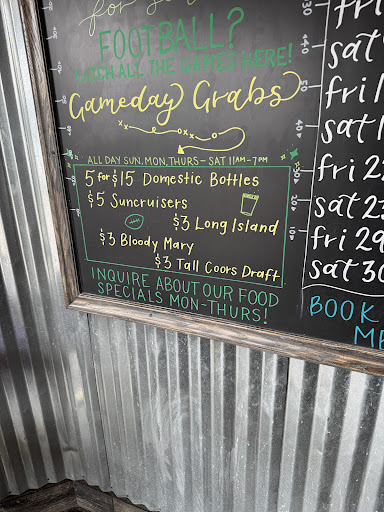 FOOTBALL?
CATCH ALL THE GAMES HERE!
Gameday Grabs
ALL DAY SUN, MON, THURS - SAT 11AM - 7PM
5 for $15 Domestic Bottles
$5 Suncruisers
$3 Long Island
$3 Bloody Mary
$3 Tall Coors Draft
INQUIRE ABOUT OUR FOOD
SPECIALS MON-THURS!
fri
sat
fri
sat
fri 2
sat 23
fri 29
sat 30
BOOK